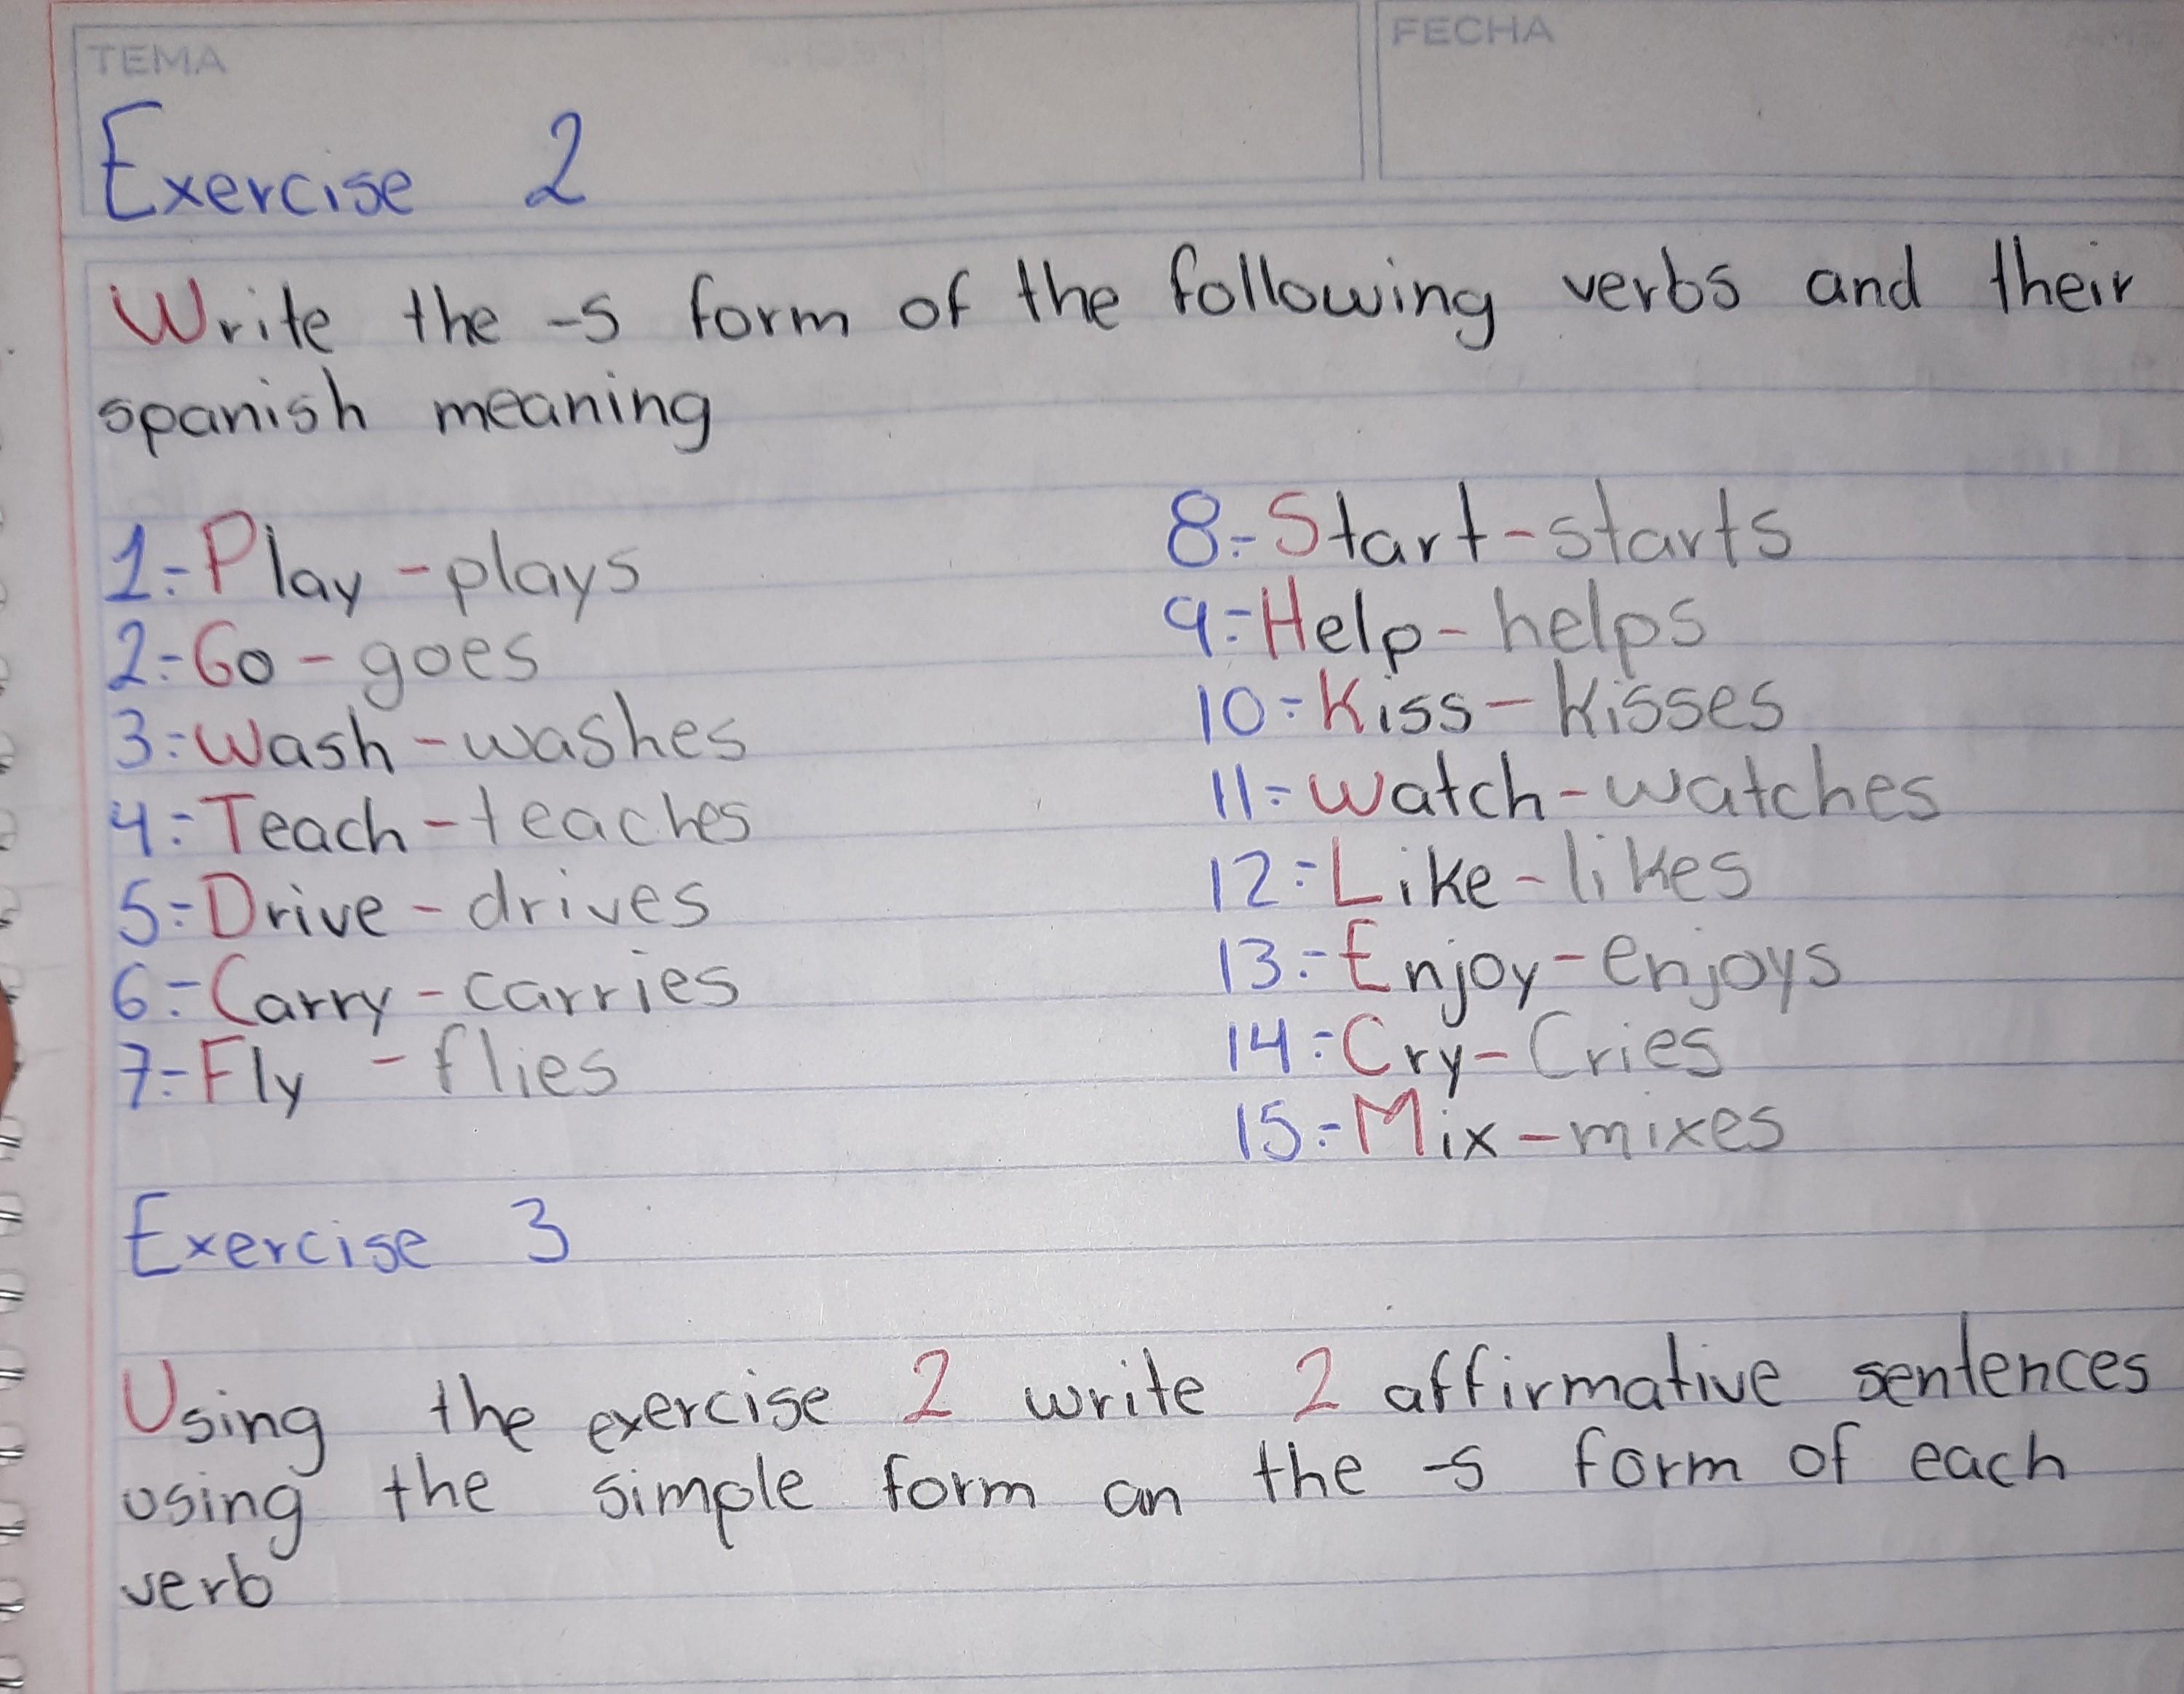 TEMA
FECHA
Exercise 2
Write the -s form of the following verbs and their
spanish meaning
1.- Play - plays
2.- Go - goes
3.- Wash - washes
4.- Teach - teaches
5.- Drive - drives
6.- Carry - carries
7.- Fly - flies
8.- Start - starts
9.- Help - helps
10.- Kiss - kisses
11.- Watch - watches
12.- Like - likes
13.- Enjoy - enjoys
14.- Cry - Cries
15.- Mix - mixes
Exercise 3
Using the exercise 2 write 2 affirmative sentences
using the simple form an the -s form of each
verb